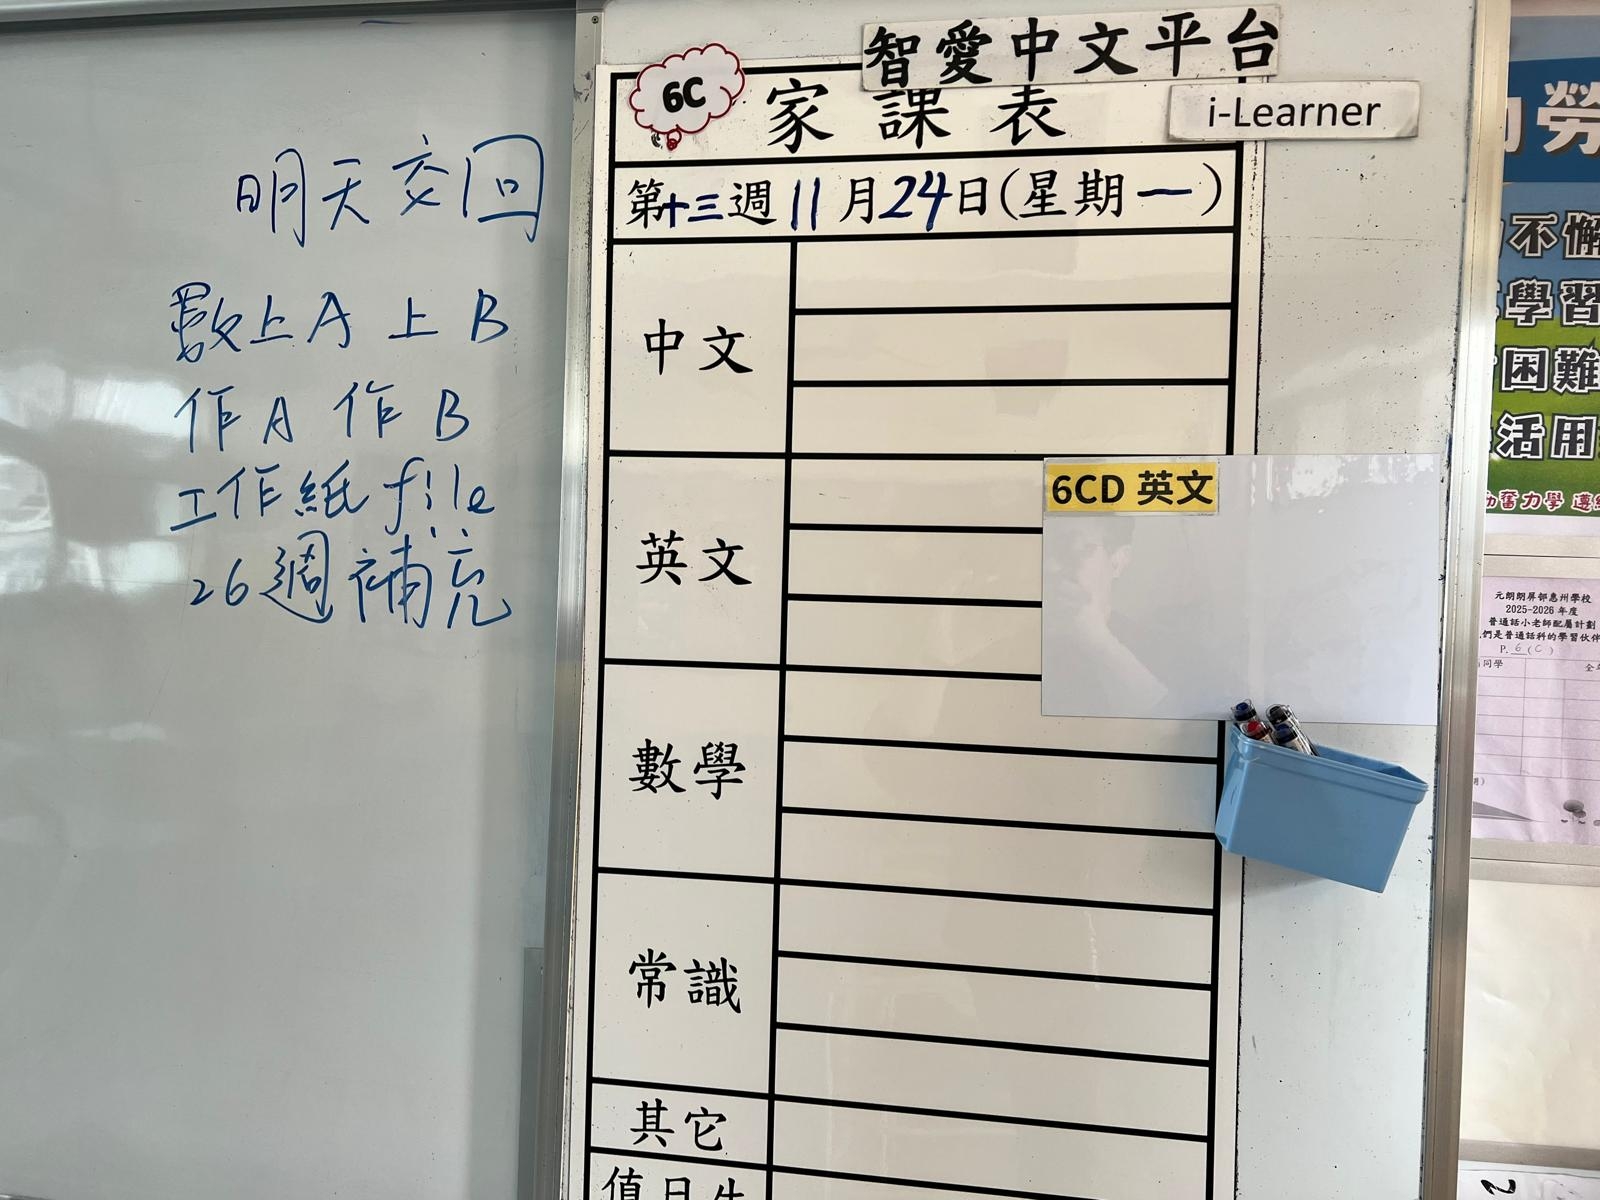 明天交回
數上A 上B
作A 作B
工作紙 file
26週補充
智愛中文平台
i-Learner
6C
家課表
第十三週11月24日(星期一)
中文
英文
6CD 英文
數學
常識
其它
值日生
勞
不懈
學習
困難
活用
奮力學 遵
元朗朗屏邨惠州學校
2025-2026 年度
普通話小老師配屬計劃
們是普通話科的學習伙伴
P. 6 (C)
同學
全
2